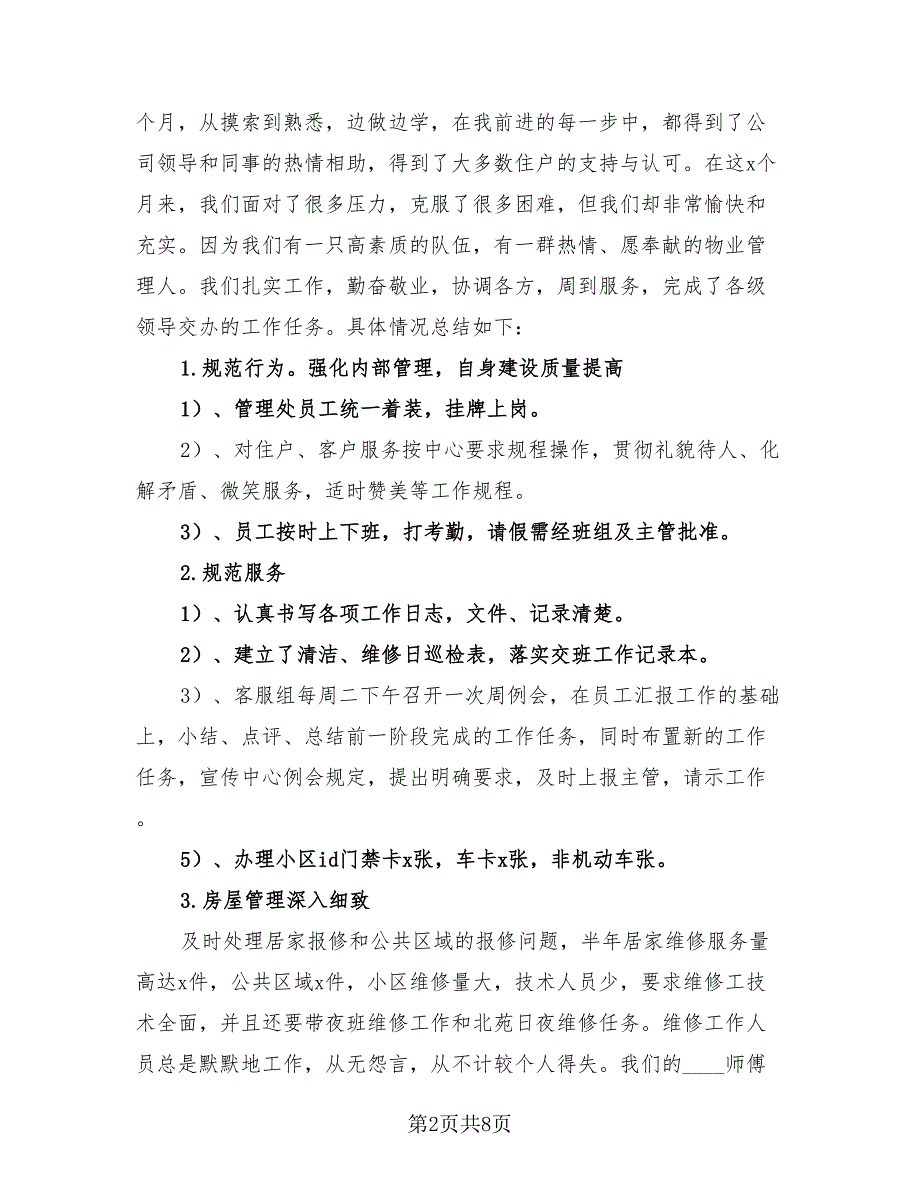 个月，从摸索到熟悉，边做边学，在我前进的每一步中，都得到了公
司领导和同事的热情相助，得到了大多数住户的支持与认可。在这x个
月来，我们面对了很多压力，克服了很多困难，但我们却非常愉快和
充实。因为我们有一只高素质的队伍，有一群热情、愿奉献的物业管
理人。我们扎实工作，勤奋敬业，协调各方，周到服务，完成了各级
领导交办的工作任务。具体情况总结如下：
1.规范行为。强化内部管理，自身建设质量提高
1）、管理处员工统一着装，挂牌上岗。
2）、对住户、客户服务按中心要求规程操作，贯彻礼貌待人、化
解矛盾、微笑服务，适时赞美等工作规程。
3）、员工按时上下班，打考勤，请假需经班组及主管批准。
2.规范服务
1）、认真书写各项工作日志，文件、记录清楚。
2）、建立了清洁、维修日巡检表，落实交班工作记录本。
3）、客服组每周二下午召开一次周例会，在员工汇报工作的基础
上，小结、点评、总结前一阶段完成的工作任务，同时布置新的工作
任务，宣传中心例会规定，提出明确要求，及时上报主管，请示工作
。
5）、办理小区id门禁卡x张，车卡x张，非机动车张。
3.房屋管理深入细致
及时处理居家报修和公共区域的报修问题，半年居家维修服务量
高达x件，公共区域x件，小区维修量大，技术人员少，要求维修工技
术全面，并且还要带夜班维修工作和北苑日夜维修任务。维修工作人
员总是默默地工作，从无怨言，从不计较个人得失。我们的____师傅
第2页共8页